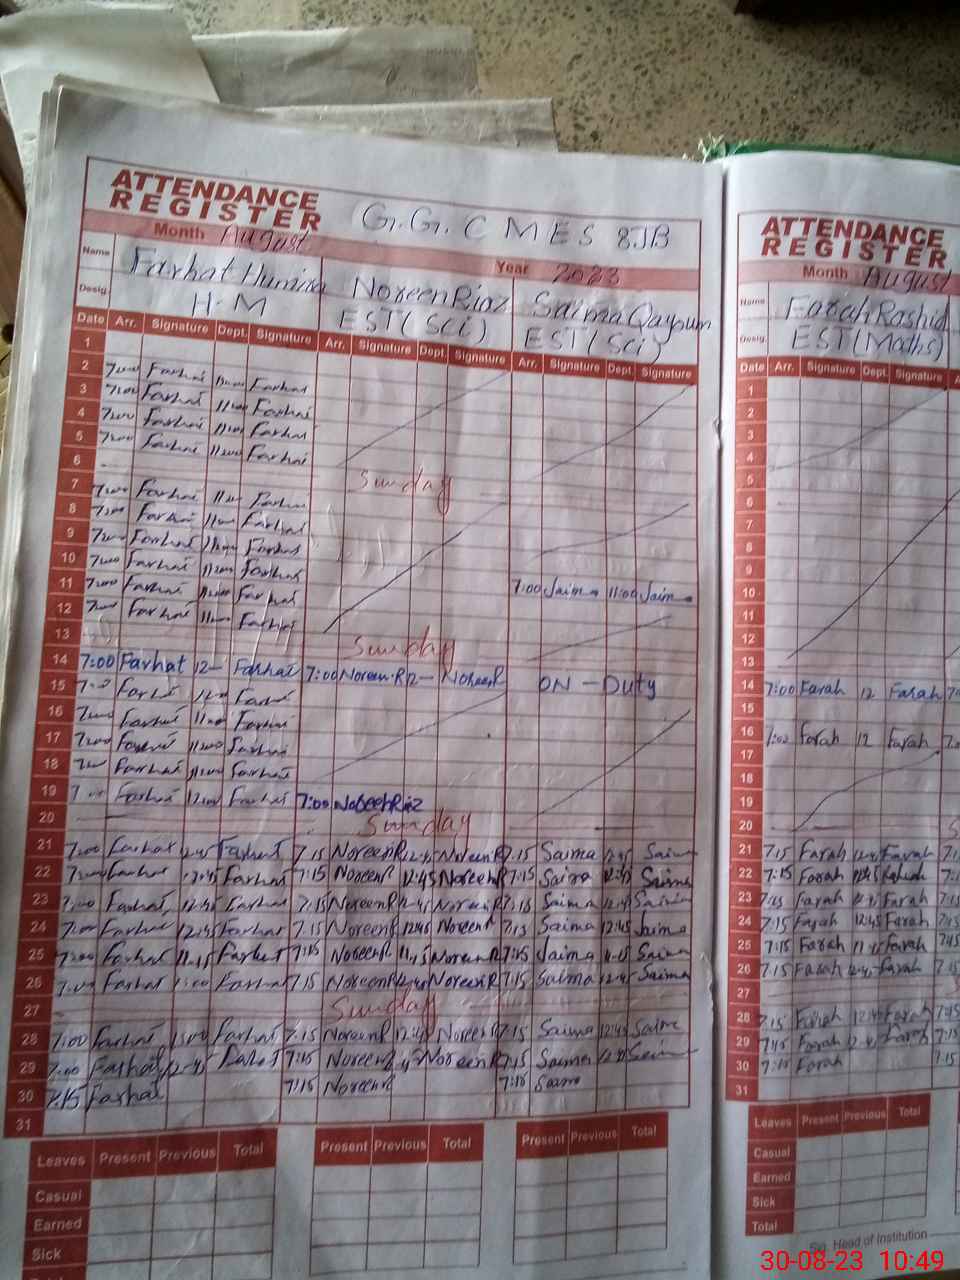 ATTENDANCE
REGISTER G.G.C MES 8JB
Month August Year 2023
Name Farhat Humira Noreen Riaz Saima Qayoum
Desig. H.M EST(Sci) EST(Sci)
Date Arr. Signature Dept. Signature Arr. Signature Dept. Signature Arr. Signature Dept. Signature
1
2 7:00 Farhat 11:00 Farhat
3 7:00 Farhat 11:00 Farhat
4 7:00 Farhat 11:00 Farhat
5 7:00 Farhat 11:00 Farhat
6 Sunday
7 7:00 Farhat 11:00 Farhat
8 7:00 Farhat 11:00 Farhat
9 7:00 Farhat 11:00 Farhat
10 7:00 Farhat 11:00 Farhat
11 7:00 Farhat 11:00 Farhat 7:00 Saima 11:00 Saima
12 7:00 Farhat 11:00 Farhat
13 Sunday
14 7:00 Farhat 12- Farhat 7:00 Noreen.R 12- Noreen R
15 Farhat 12:00 Farhat ON-Duty
16 7:00 Farhat 11:00 Farhat
17 7:00 Farhat 11:00 Farhat
18 7:00 Farhat 11:00 Farhat
19 7:00 Farhat 12:00 Farhat 7:00 Noreen Riaz
20 Sunday
21 7:00 Farhat 12:45 Farhat 7:15 Noreen R 12:45 Noreen R 7:15 Saima 12:45 Saima
22 7:00 Farhat 12:45 Farhat 7:15 Noreen R 12:45 Noreen R 7:15 Saima 12:45 Saima
23 7:00 Farhat 12:45 Farhat 7:15 Noreen R 12:45 Noreen R 7:15 Saima 12:45 Saima
24 7:00 Farhat 12:45 Farhat 7:15 Noreen R 12:45 Noreen R 7:15 Saima 12:45 Saima
25 7:00 Farhat 11:45 Farhat 7:15 Noreen R 11:45 Noreen R 7:15 Saima Saima
26 7:00 Farhat Farhat 7:15 Noreen R 12:45 Noreen R 7:15 Saima 12:45 Saima
27 Sunday
28 7:00 Farhat Farhat 7:15 Noreen R 12:45 Noreen R 7:15 Saima 12:45 Saima
29 7:00 Farhat 12:45 Farhat 7:15 Noreen R Noreen R 7:15 Saima 12:45 Saima
30 7:15 Farhat 7:15 Noreen R 7:15 Saima
31
Leaves Present Previous Total Present Previous Total Present Previous Total
Casual
Earned
Sick
ATTENDANCE
REGISTER
Month August
Name Farah Rashid
Desig. EST(Maths)
Date Arr. Signature Dept. Signature
1
2
3
4
5
6
7
8
9
10
11
12
13
14 7:00 Farah 12 Farah
15
16 7:00 Farah 12 Farah
17
18
19
20
21 7:15 Farah 12:45 Farah
22 7:15 Farah 12:45 Farah
23 7:15 Farah 12:45 Farah
24 7:15 Farah 12:45 Farah
25 7:15 Farah 11:45 Farah
26 7:15 Farah 12:45 Farah
27
28 7:15 Farah 12:45 Farah
29 7:15 Farah 12:45 Farah
30 7:15 Farah
31
Leaves Present Previous Total
Casual
Earned
Sick
Total
Sig. Head of Institution
30-08-23 10:49